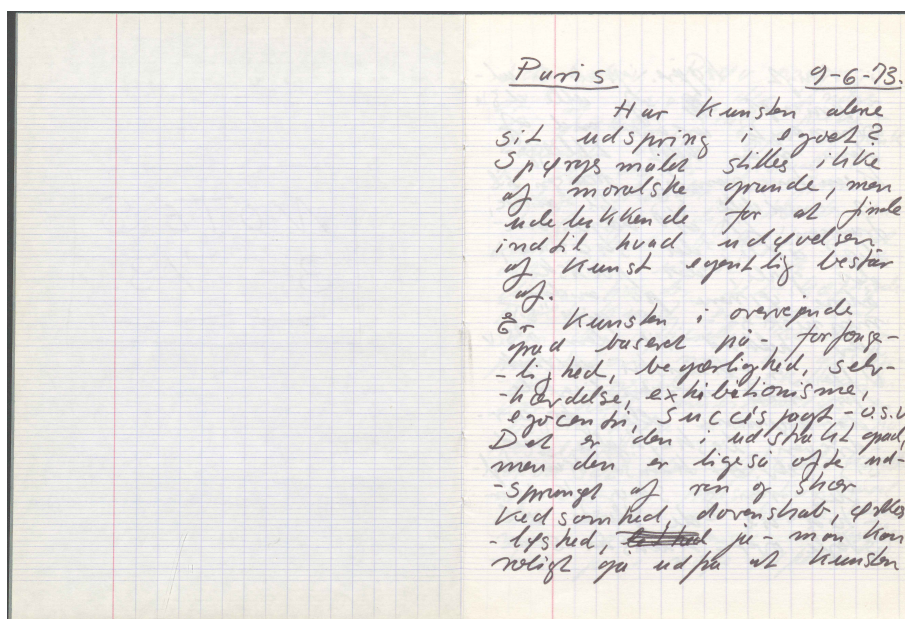 Paris 9-6-73.
Har Kunsten alene
sit udspring i egoet?
Spørgsmålet stilles ikke
af moralske grunde, men
udelukkende for at finde
indtil hvad udøvelsen
af Kunst egentlig består
af.
Er Kunsten i overvejende
grad baseret på - forfænge-
-lighed, begærlighed, selv-
-hævdelse, exhibitionisme,
egocentri, Succés jagt - o.s.v
Det er den i udstrakt grad,
men den er ligeså ofte ud-
-sprunget af ren og skær
Kedsomhed, dovenskab, ørkes-
-løshed, ja - man kan
roligt gå ud fra at Kunsten